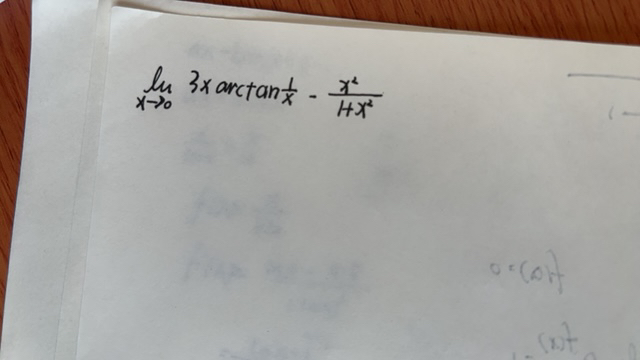 lim x→0 3x arctan 1/x - x²/(1+x²)
f(a)=0
f(x)